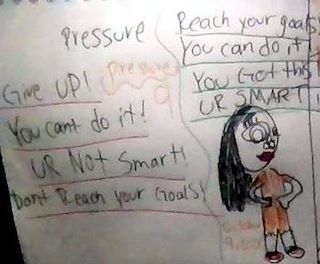 Pressure
Pressure
Give UP!
You cant do it!
UR Not Smart!
Dont Reach your Goals!
Reach your goals!
You can do it!
You Got this
UR SMART!
October